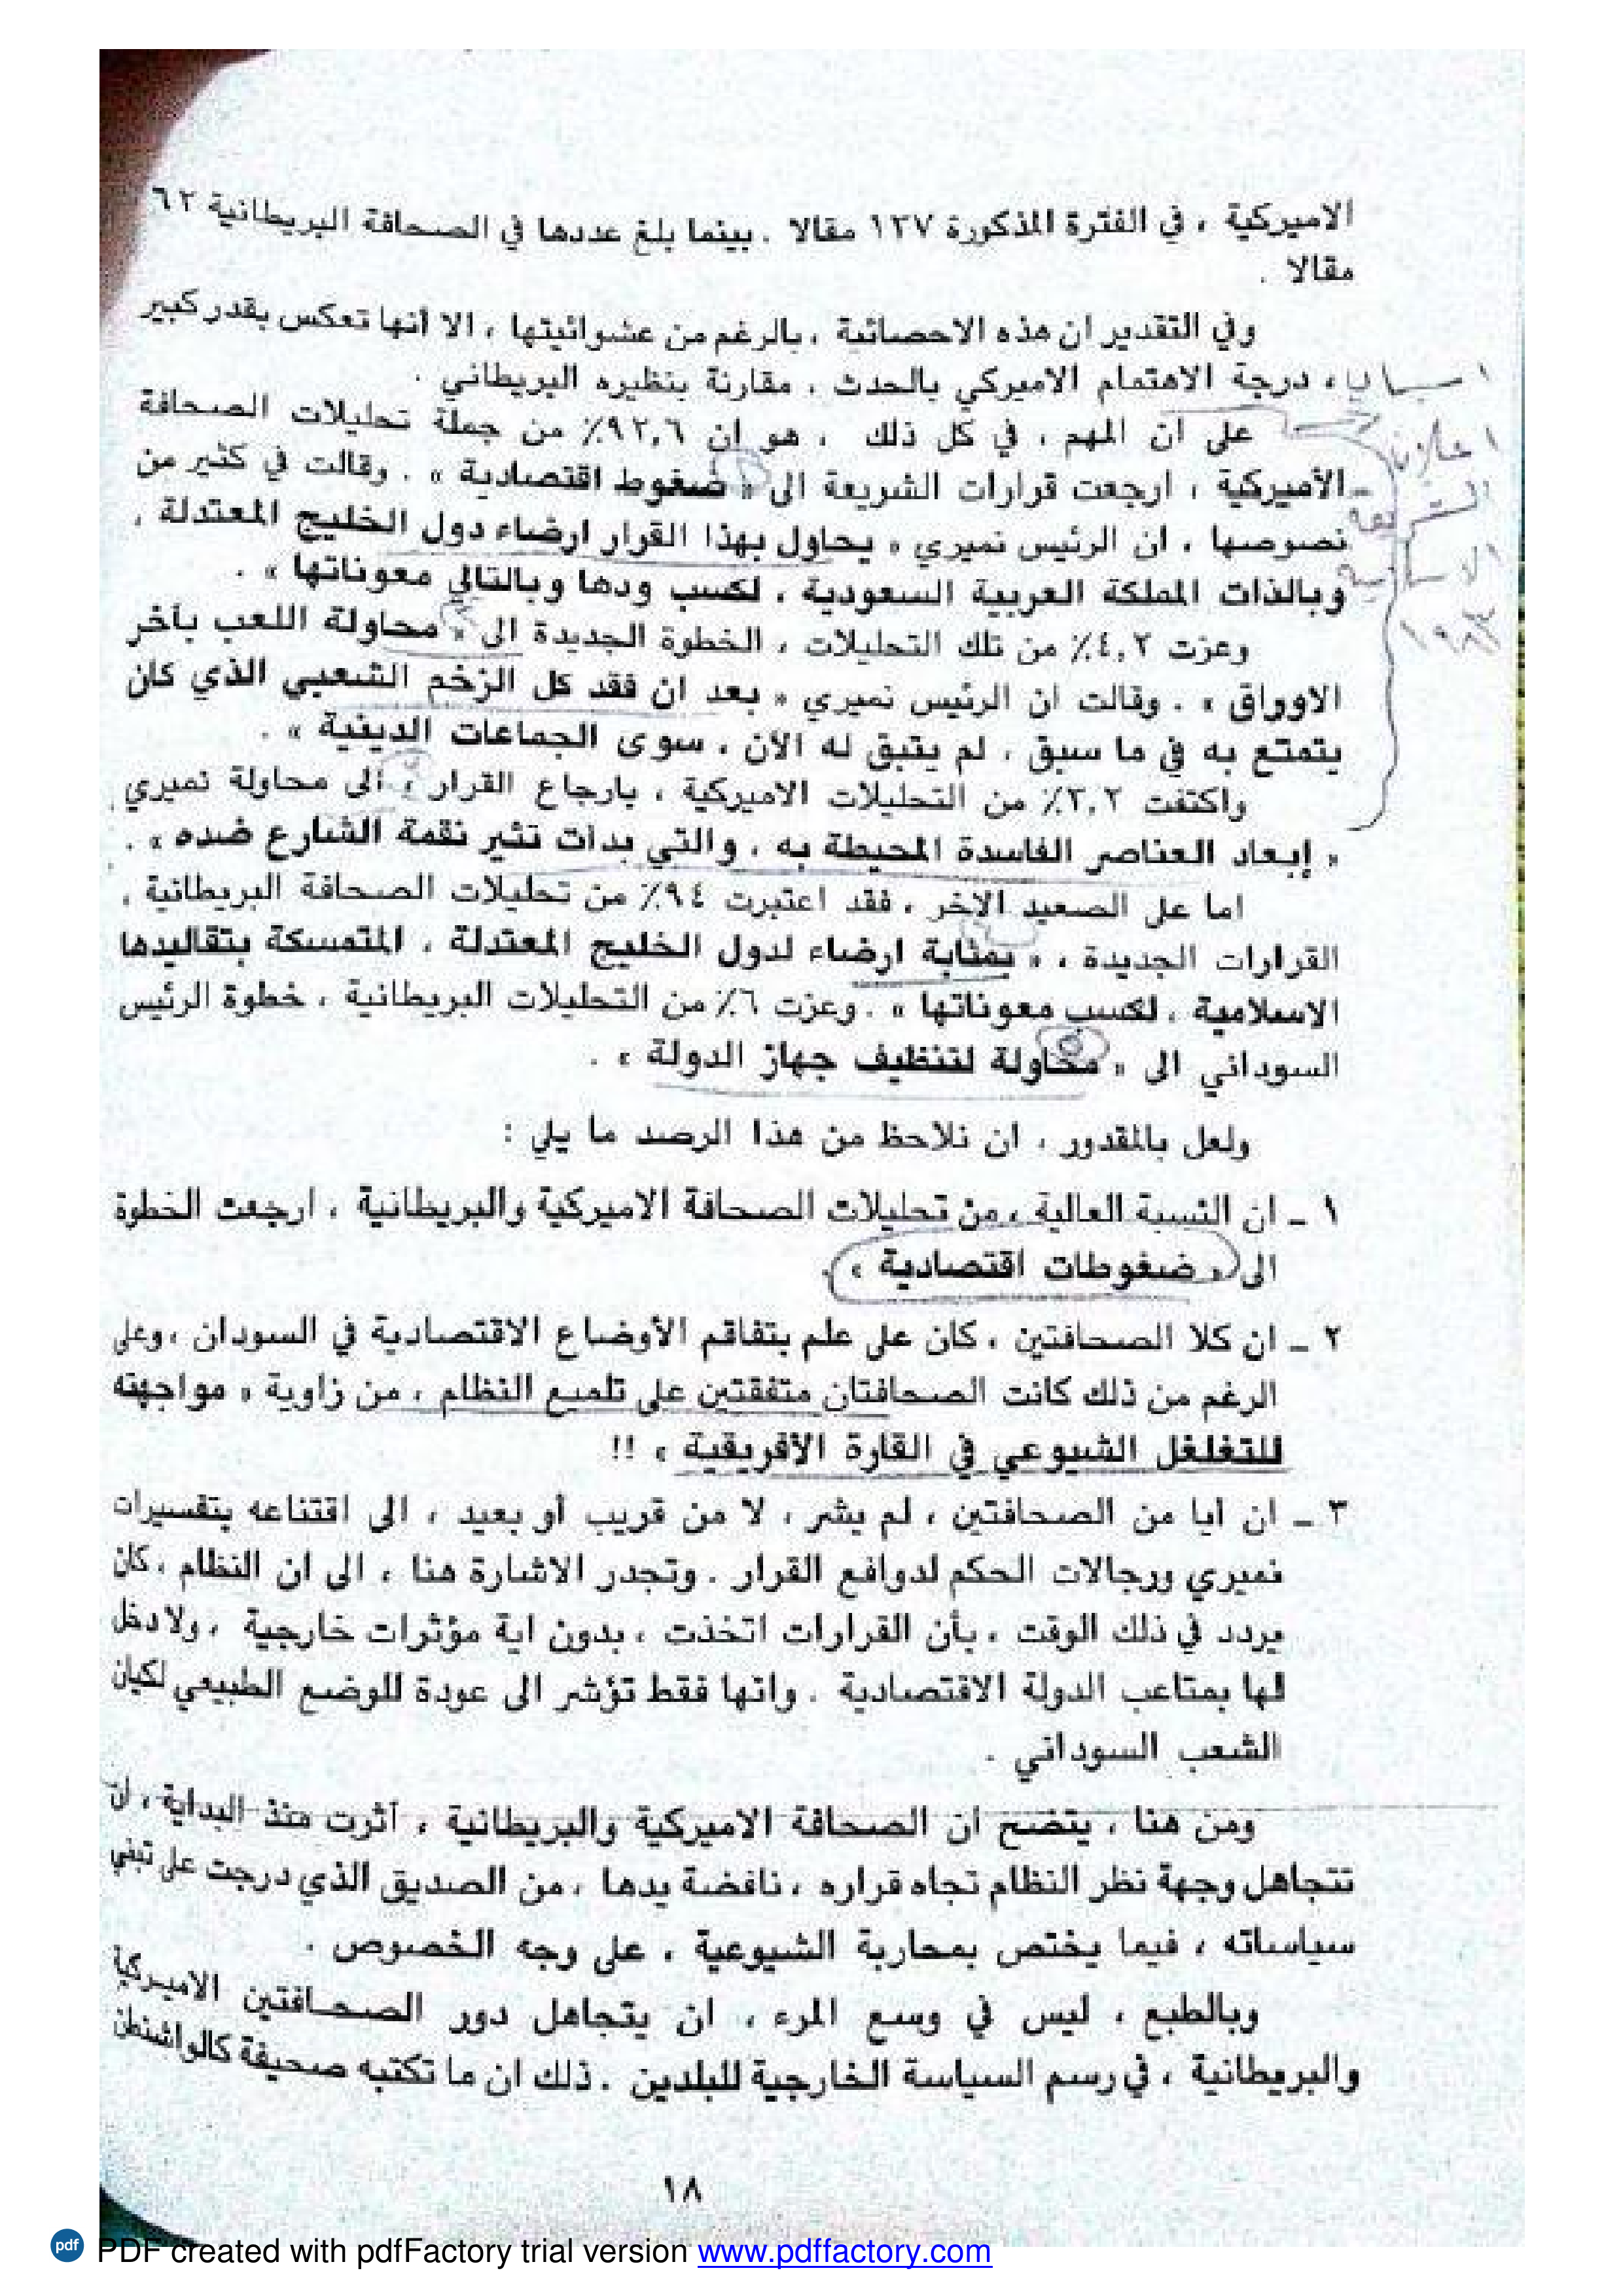 الاميركية ، في الفترة المذكورة ١٣٧ مقالا . بينما بلغ عددها في الصحافة البريطانية ٦٢
مقالا .
وفي التقدير ان هذه الاحصائية ، بالرغم من عشوائيتها ، الا أنها تعكس بقدر كبير
درجة الاهتمام الاميركي بالحدث ، مقارنة بنظيره البريطاني .
على ان المهم ، في كل ذلك ، هو ان ٩٢,٦٪ من جملة تحليلات الصحافة
الأميركية ، ارجعت قرارات الشريعة الى « ضغوط اقتصادية » . وقالت في كثير من
نصوصها ، ان الرئيس نميري « يحاول بهذا القرار ارضاء دول الخليج المعتدلة ،
وبالذات المملكة العربية السعودية ، لكسب ودها وبالتالي معوناتها » .
وعزت ٤,٢٪ من تلك التحليلات ، الخطوة الجديدة الى « محاولة اللعب بآخر
الاوراق » . وقالت ان الرئيس نميري « بعد ان فقد كل الزخم الشعبي الذي كان
يتمتع به في ما سبق ، لم يتبق له الآن ، سوى الجماعات الدينية » .
واكتفت ٣,٢٪ من التحليلات الاميركية ، بارجاع القرار ، الى محاولة نميري
« إبعاد العناصر الفاسدة المحيطة به ، والتي بدات تثير نقمة الشارع ضده » .
اما على الصعيد الآخر ، فقد اعتبرت ٩٤٪ من تحليلات الصحافة البريطانية ،
القرارات الجديدة ، « بمثابة ارضاء لدول الخليج المعتدلة ، المتمسكة بتقاليدها
الاسلامية ، لكسب معوناتها » . وعزت ٦٪ من التحليلات البريطانية ، خطوة الرئيس
السوداني الى « محاولة لتنظيف جهاز الدولة » .
ولعل بالمقدور ، ان نلاحظ من هذا الرصد ما يلي :
١ ـ ان النسبة العالية ، من تحليلات الصحافة الاميركية والبريطانية ، ارجعت الخطوة
الى « ضغوطات اقتصادية » .
٢ ـ ان كلا الصحافتين ، كان على علم بتفاقم الأوضاع الاقتصادية في السودان ، وعلى
الرغم من ذلك كانت الصحافتان متفقتين على تلميع النظام ، من زاوية « مواجهته
للتغلغل الشيوعي في القارة الأفريقية » !!
٣ ـ ان ايا من الصحافتين ، لم يشر ، لا من قريب أو بعيد ، الى اقتناعه بتفسيرات
نميري ورجالات الحكم لدوافع القرار . وتجدر الاشارة هنا ، الى ان النظام ، كان
يردد في ذلك الوقت ، بأن القرارات اتخذت ، بدون اية مؤثرات خارجية ، ولا دخل
لها بمتاعب الدولة الاقتصادية . وانها فقط تؤشر الى عودة للوضع الطبيعي لكيان
الشعب السوداني .
ومن هنا ، يتضح ان الصحافة الاميركية والبريطانية ، آثرت منذ البداية ، ان
تتجاهل وجهة نظر النظام تجاه قراره ، نافضة يدها ، من الصديق الذي درجت على تبني
سياساته ، فيما يختص بمحاربة الشيوعية ، على وجه الخصوص .
وبالطبع ، ليس في وسع المرء ، ان يتجاهل دور الصحافتين الاميركية
والبريطانية ، في رسم السياسة الخارجية للبلدين . ذلك ان ما تكتبه صحيفة كالواشنطن
١٨
pdf PDF created with pdfFactory trial version www.pdffactory.com